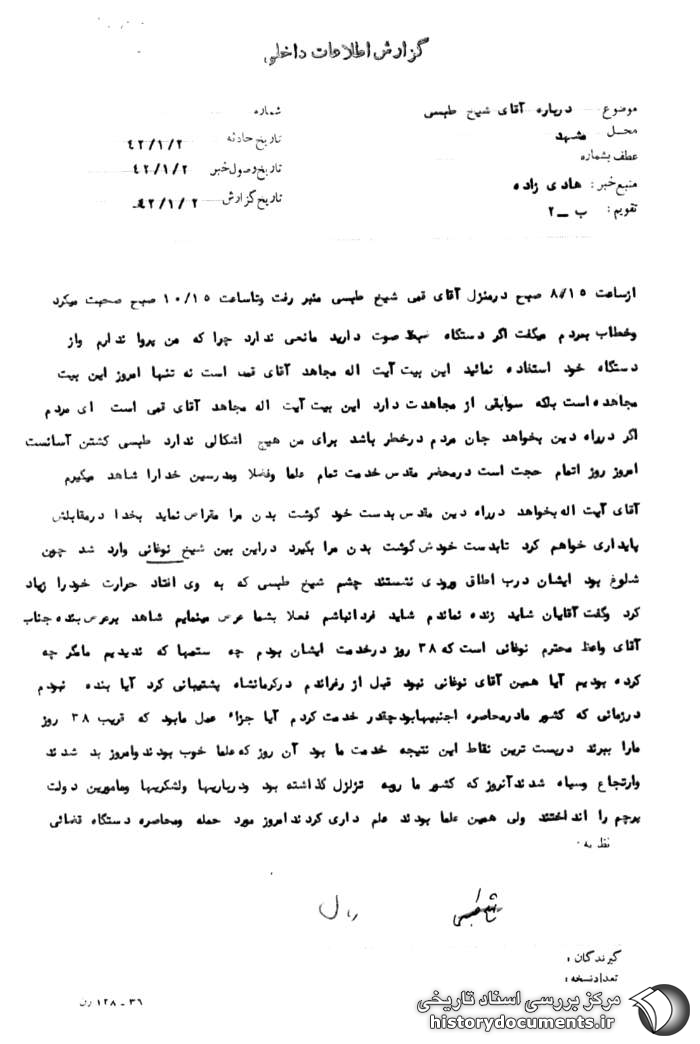 گزارش اطلاعات داخلی
موضوع درباره آقای شیخ طبسی
محل مشهد
عطف بشماره
منبع خبر: هادی زاده
تقویم: ب ــ ۲
شماره
تاریخ حادثه ۴۲/۱/۲
تاریخ وصول خبر ۴۲/۱/۲
تاریخ گزارش ۴۲/۱/۲
ازساعت ۸/۱۵ صبح درمنزل آقای قمی شیخ طبسی منبر رفت وتاساعت ۱۰/۱۵ صبح صحبت میکرد
وخطاب بمردم میگفت اگر دستگاه ضبط صوت دارید مانعی ندارد چرا که من پروا ندارم واز
دستگاه خود استفاده نمائید این بیت آیت اله مجاهد آقای قمی است نه تنها امروز این بیت
مجاهده است بلکه سوابقی از مجاهدت دارد این بیت آیت اله مجاهد آقای قمی است ای مردم
اگر درراه دین بخواهد جان مردم درخطر باشد برای من هیچ اشکالی ندارد طبسی کشتن آسانست
امروز روز اتمام حجت است درمحضر مقدس خدمت تمام علما وفضلا ومدرسین خدارا شاهد میگیرم
آقای آیت اله بخواهد درراه دین مقدس بدست خود گوشت بدن مرا مقراض نماید بخدا درمقابلش
پایداری خواهم کرد تابدست خودش گوشت بدن مرا بگیرد دراین بین شیخ نوغانی وارد شد چون
شلوغ بود ایشان درب اطاق ورودی نشستند چشم شیخ طبسی که به وی افتاد حرارت خودرا زیاد
کرد وگفت آقایان شاید زنده نماندم شاید فردانباشم فعلا بشما عرض مینمایم شاهد برعرض بنده جناب
آقای واعظ محترم نوغانی است که ۳۸ روز درخدمت ایشان بودم چه ستمها که ندیدیم مامگر چه
کرده بودیم آیا همین آقای نوغانی نبود قبل از رفراندم درکرمانشاه پشتیبانی کرد آیا بنده نبودم
درزمانی که کشور مادرمحاصره اجنبیهابودچقدر خدمت کردم آیا جزاء عمل مابود که قریب ۳۸ روز
مارا ببرند درپست ترین نقاط این نتیجه خدمت ما بود آن روز که علما خوب بودند وامروز بد شدند
وارتجاع وسیاه شدندآنروز که کشور ما روبه تزلزل گذاشته بود ودرباریها ولشکریها ومامورین دولت
پرچم را انداختند ولی همین علما بودند علم داری کردند امروز مورد حمله ومحاصره دستگاه قضائی
نظریه
شیخ طبسی
گیرندگان :
تعدادنسخه :
۳۶ ـ ۱۲۸
مرکز بررسی اسناد تاریخی
historydocuments.ir